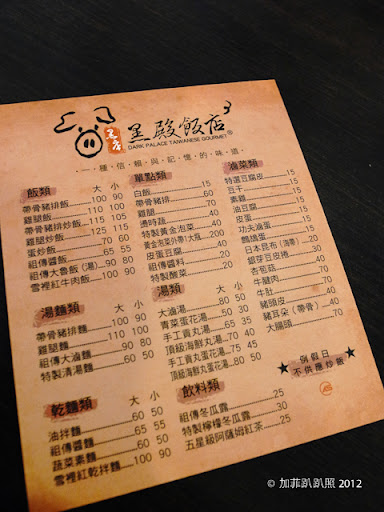 黑店
黑殿飯店3
DARK PALACE TAIWANESE GOURMET®
一種信賴與記憶的味道
飯類 大 小
帶骨豬排飯 100 90
雞腿飯 110 100
帶骨豬排炒飯
雞腿炒飯
蛋炒飯 70 60
祖傳醬飯
祖傳大魯飯(湯) 90 80
雪裡紅牛肉飯 100 90
湯麵類 大 小
帶骨豬排麵 100 90
雞腿麵 110 100
祖傳大滷麵 90 80
特製清湯麵 60 50
乾麵類 大 小
油拌麵 60 50
祖傳醬麵 65 55
蔬菜素麵 60 50
雪裡紅乾拌麵 100 90
單點類
白飯 15
帶骨豬排 60
雞腿
燙時蔬
特製黃金泡菜
黃金泡菜外帶(大瓶) 200
皮蛋豆腐
祖傳醬料
特製酸菜
湯類 大 小
大滷湯 80 50
青菜蛋花湯 50 30
手工貢丸湯 50 30
頂級海鮮丸湯 70 40
手工貢丸蛋花湯 75 45
頂級海鮮丸蛋花湯 80 50
飲料類
祖傳冬瓜露 25
特製檸檬冬瓜露 30
五星級阿薩姆紅茶 25
滷菜類
特選豆腐皮 15
豆干
素雞
油豆腐
皮蛋
功夫滷蛋
鵪鶉蛋
日本昆布(海帶)
銀芽豆皮捲
杏苞菇
牛腱肉
牛肚
豬頭皮
豬耳朵(帶骨) 40
大腸頭 70
★例假日★
不供應炒飯
© 加菲趴趴照 2012